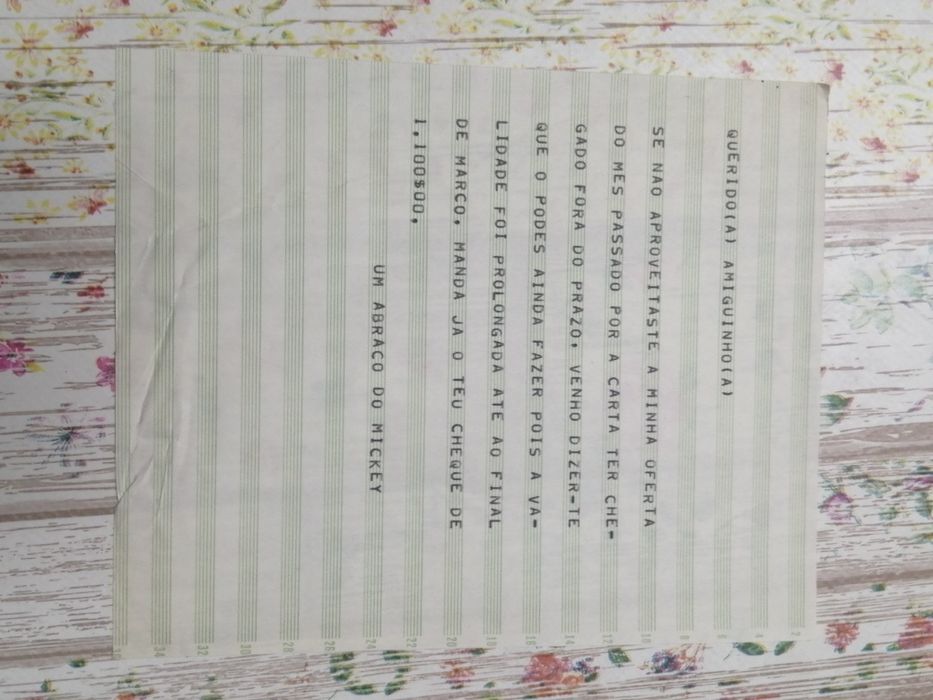 QUERIDO(A) AMIGUINHO(A)
SE NAO APROVEITASTE A MINHA OFERTA
DO MES PASSADO POR A CARTA TER CHE-
GADO FORA DO PRAZO, VENHO DIZER-TE
QUE O PODES AINDA FAZER POIS A VA-
LIDADE FOI PROLONGADA ATE AO FINAL
DE MARCO. MANDA JA O TEU CHEQUE DE
1.100$00.
UM ABRACO DO MICKEY
2
4
6
8
10
12
14
16
18
20
22
24
26
28
30
32
34